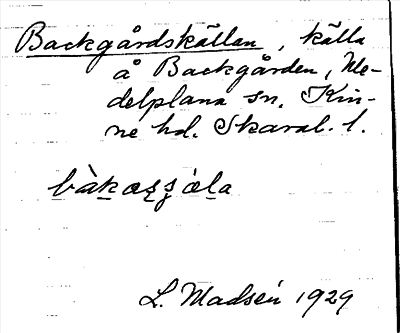 Backgårdskällan, källa
å Backgården, Me-
delplana sn. Kin-
ne hd. Skarab. l.
L. Madsén 1929